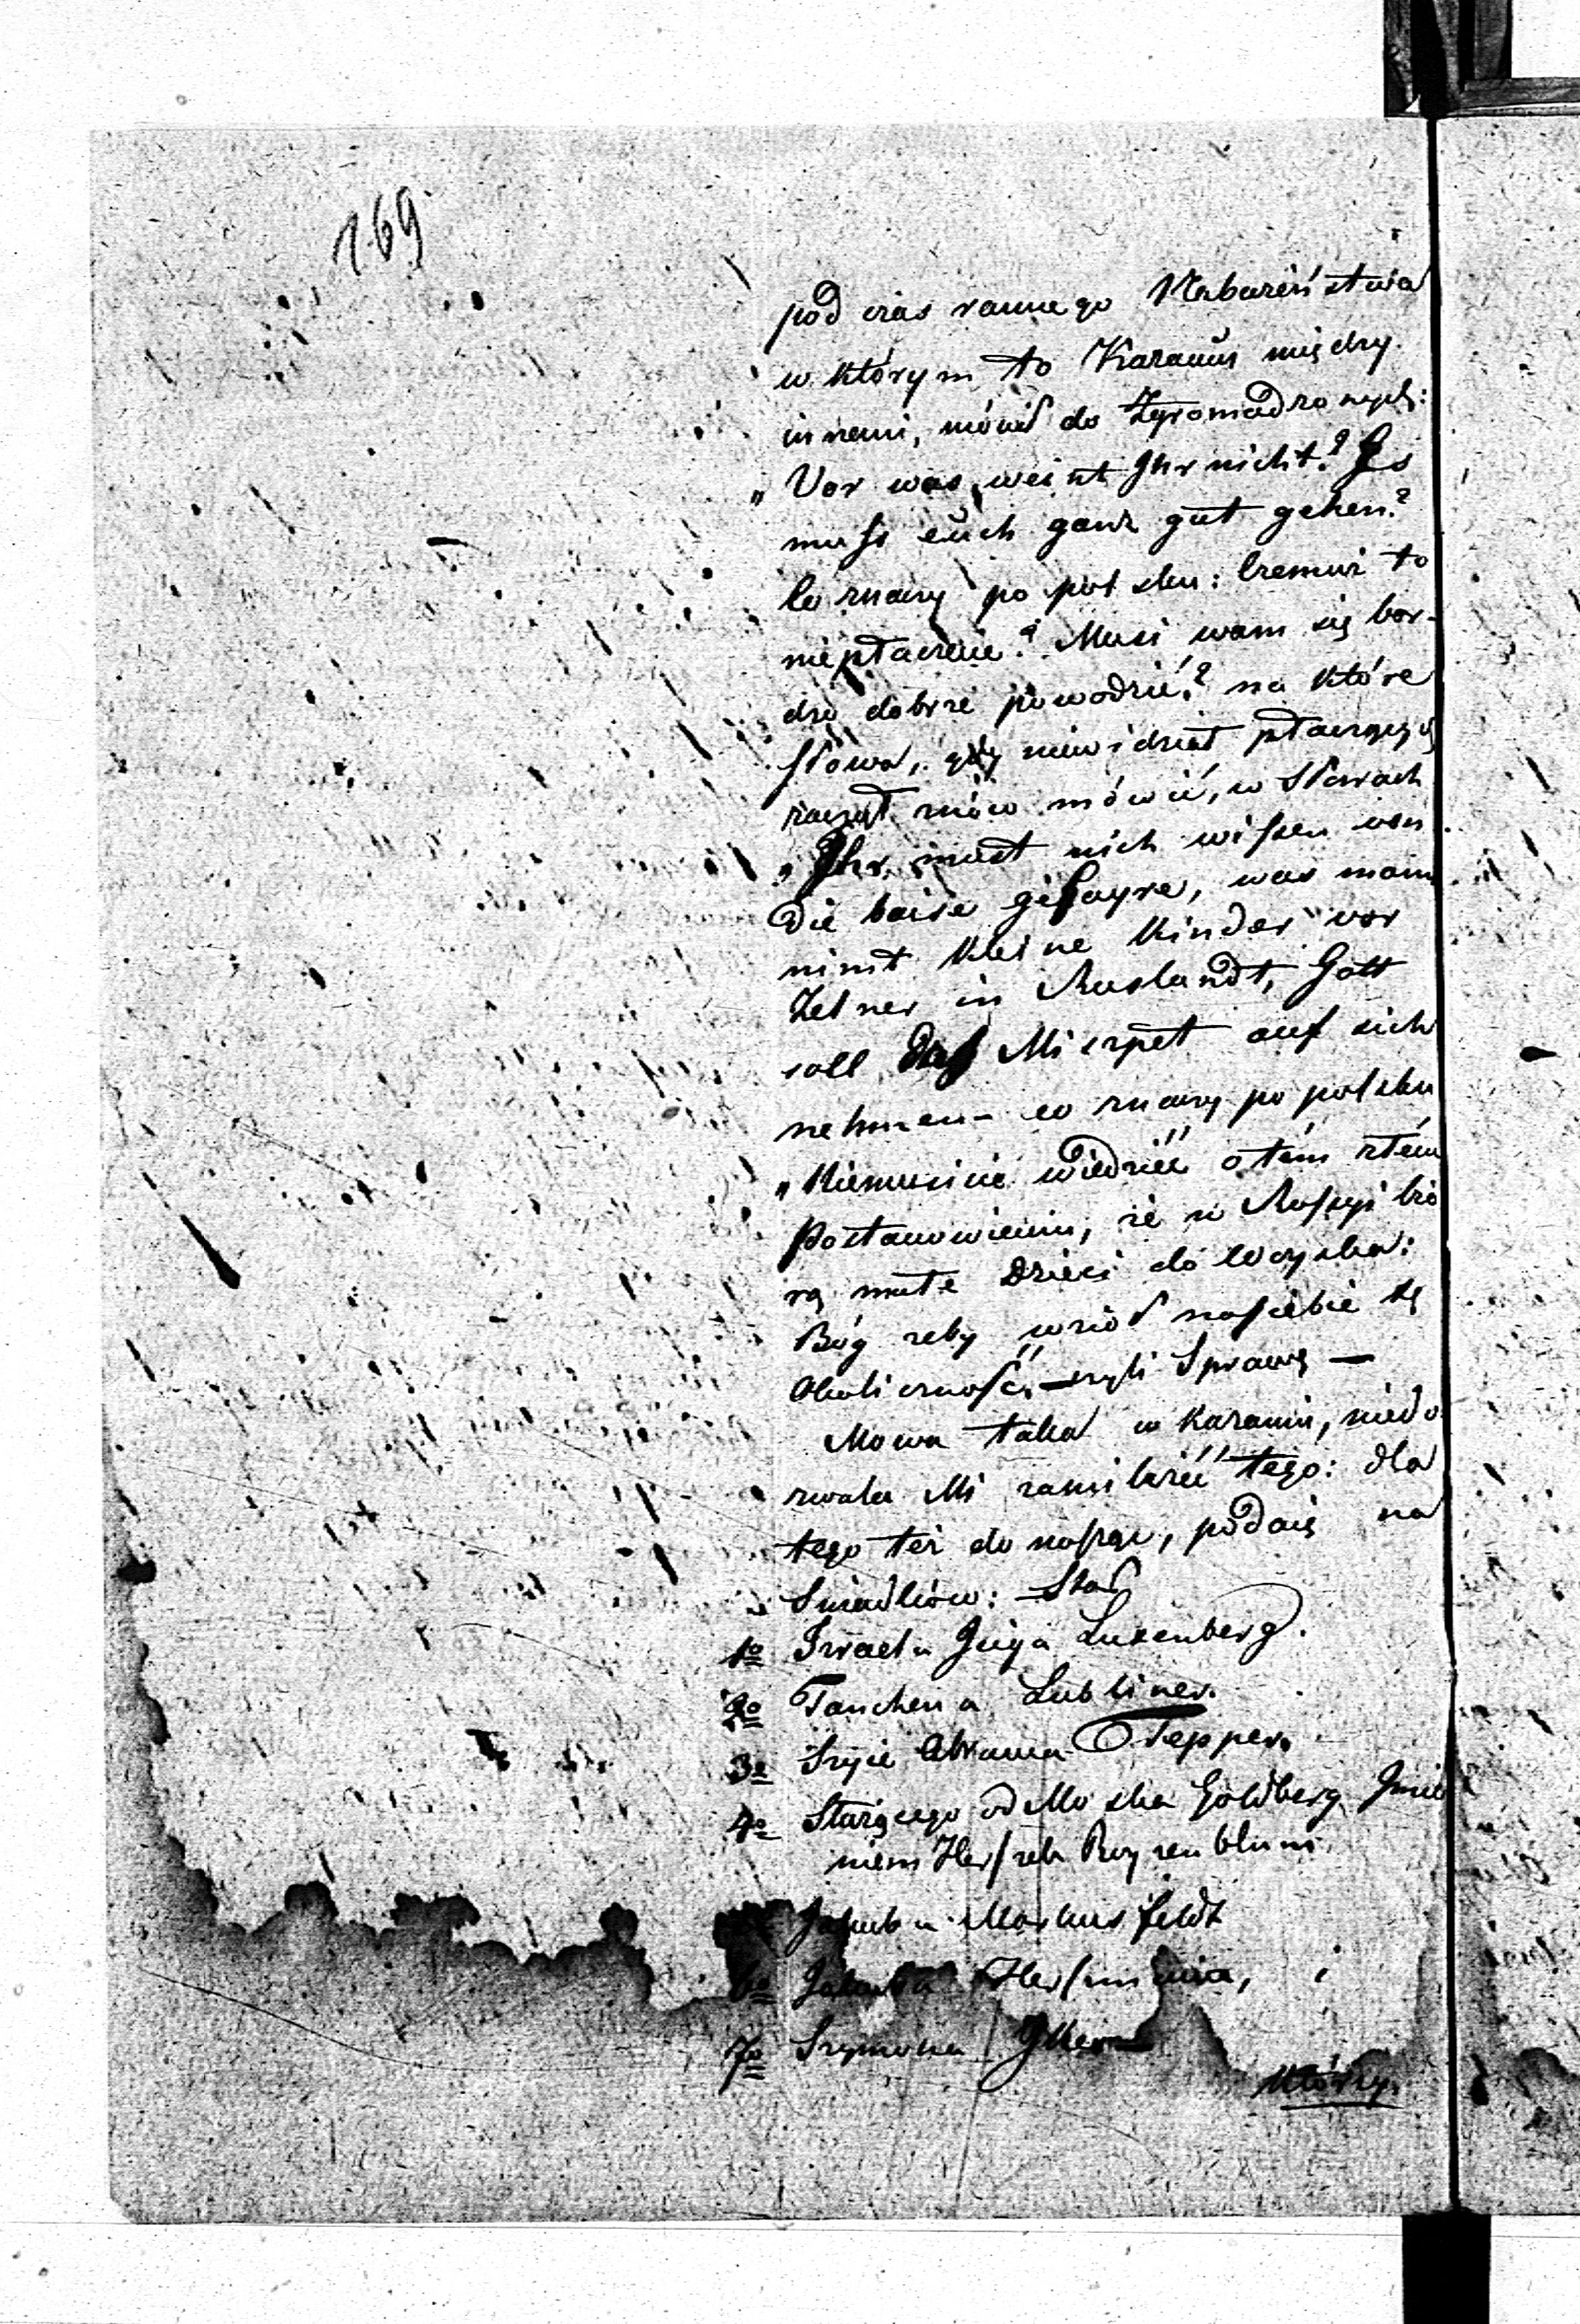 169
pod czas rannego Nabożeństwa
w którym to Kazaniu między
innemi, mówił do Zgromadzonych:
„Vor was weint Ihr nicht? Es
muss euch ganz gut gehen?
co znaczy po polsku: Czemuż to
niepłaczecie? Musi wam się bar-
dzo dobrze powodzić? na które
słowa, gdy niewidział płaczących
zaczął znów mówić, w słowach
„Ihr must nich wissen von
die baise gisayre, was man
nimt kleine Kinder vor
Zelner in Ruslandt, Gott
soll das Miszpet auf sich
nehmen - co znaczy po polsku
„Niemusicie wiedzieć o tém złém
Postanowieniu, że w Rossyi bio
rą małe dzieci do Woyska:
Bóg żeby wziął nasiebie tę
Okoliczność czyli Sprawę —
Mowa taka w Kazaniu, niedo
zwala Mi zamilczéć tego: dla
tego też donosząc, podaię na
Swiadków:
1o Izraela Luxenberg.
2o Tanchena Lubliner.
3o Szyie Abrama Tepper.
4o Starszego od Moska Goldberg Imie
niem Herszek Rozenblum
Jakuba Markusfeldt
6o Jakuba i
7o Szymona
Którzy